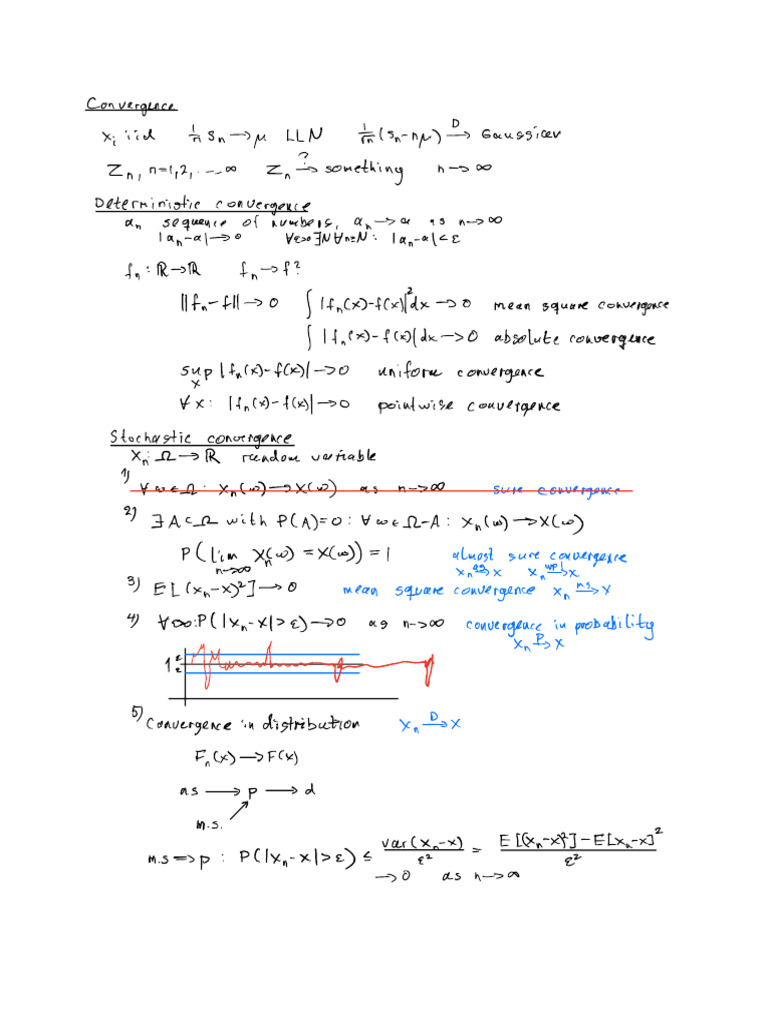 Convergence
Xᵢ iid 1/n Sₙ → μ LLN 1/√n (Sₙ-nμ) →ᴰ Gaussian
Zₙ, n=1,2,...∞ Zₙ →? something n→∞
Deterministic convergence
aₙ sequence of numbers, aₙ→a as n→∞
|aₙ-a|→0 ∀ε>0 ∃N ∀n≥N: |aₙ-a|<ε
fₙ: ℝ→ℝ fₙ→f?
||fₙ-f||→0 ∫|fₙ(x)-f(x)|²dx→0 mean square convergence
∫|fₙ(x)-f(x)|dx→0 absolute convergence
sup_x |fₙ(x)-f(x)|→0 uniform convergence
∀x: |fₙ(x)-f(x)|→0 pointwise convergence
Stochastic convergence
Xₙ: Ω→ℝ random variable
1) ∀ω∈Ω: Xₙ(ω)→X(ω) as n→∞ sure convergence
2) ∃A⊂Ω with P(A)=0: ∀ω∈Ω-A: Xₙ(ω)→X(ω)
P(lim_{n→∞} Xₙ(ω)=X(ω))=1 almost sure convergence
Xₙ →ᵃˢ X Xₙ →ʷᵖ¹ X
3) E[(Xₙ-X)²]→0 mean square convergence Xₙ →ᵐ·ˢ· X
4) P(|Xₙ-X|>ε)→0 as n→∞ convergence in probability
Xₙ →ᴾ X
1 ε ε
5) Convergence in distribution Xₙ →ᴰ X
Fₙ(x)→F(x)
as → p → d
m.s.
m.s ⇒ p: P(|Xₙ-X|>ε) ≤ var(Xₙ-X)/ε² = E[(Xₙ-X)²]-E[Xₙ-X]²/ε²
→0 as n→∞